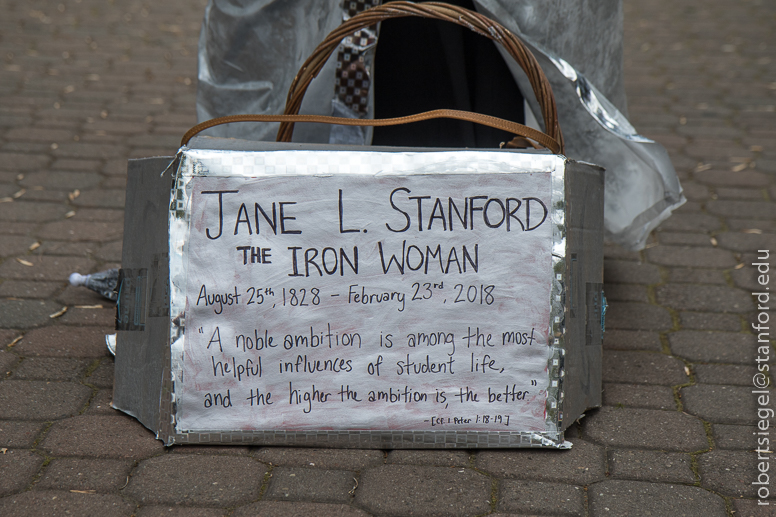 JANE L. STANFORD
THE IRON WOMAN
August 25th, 1828 – February 23rd, 2018
"A noble ambition is among the most
helpful influences of student life,
and the higher the ambition is, the better"
– [Cf. 1 Peter 1:18-19]
robertsiegel@stanford.edu